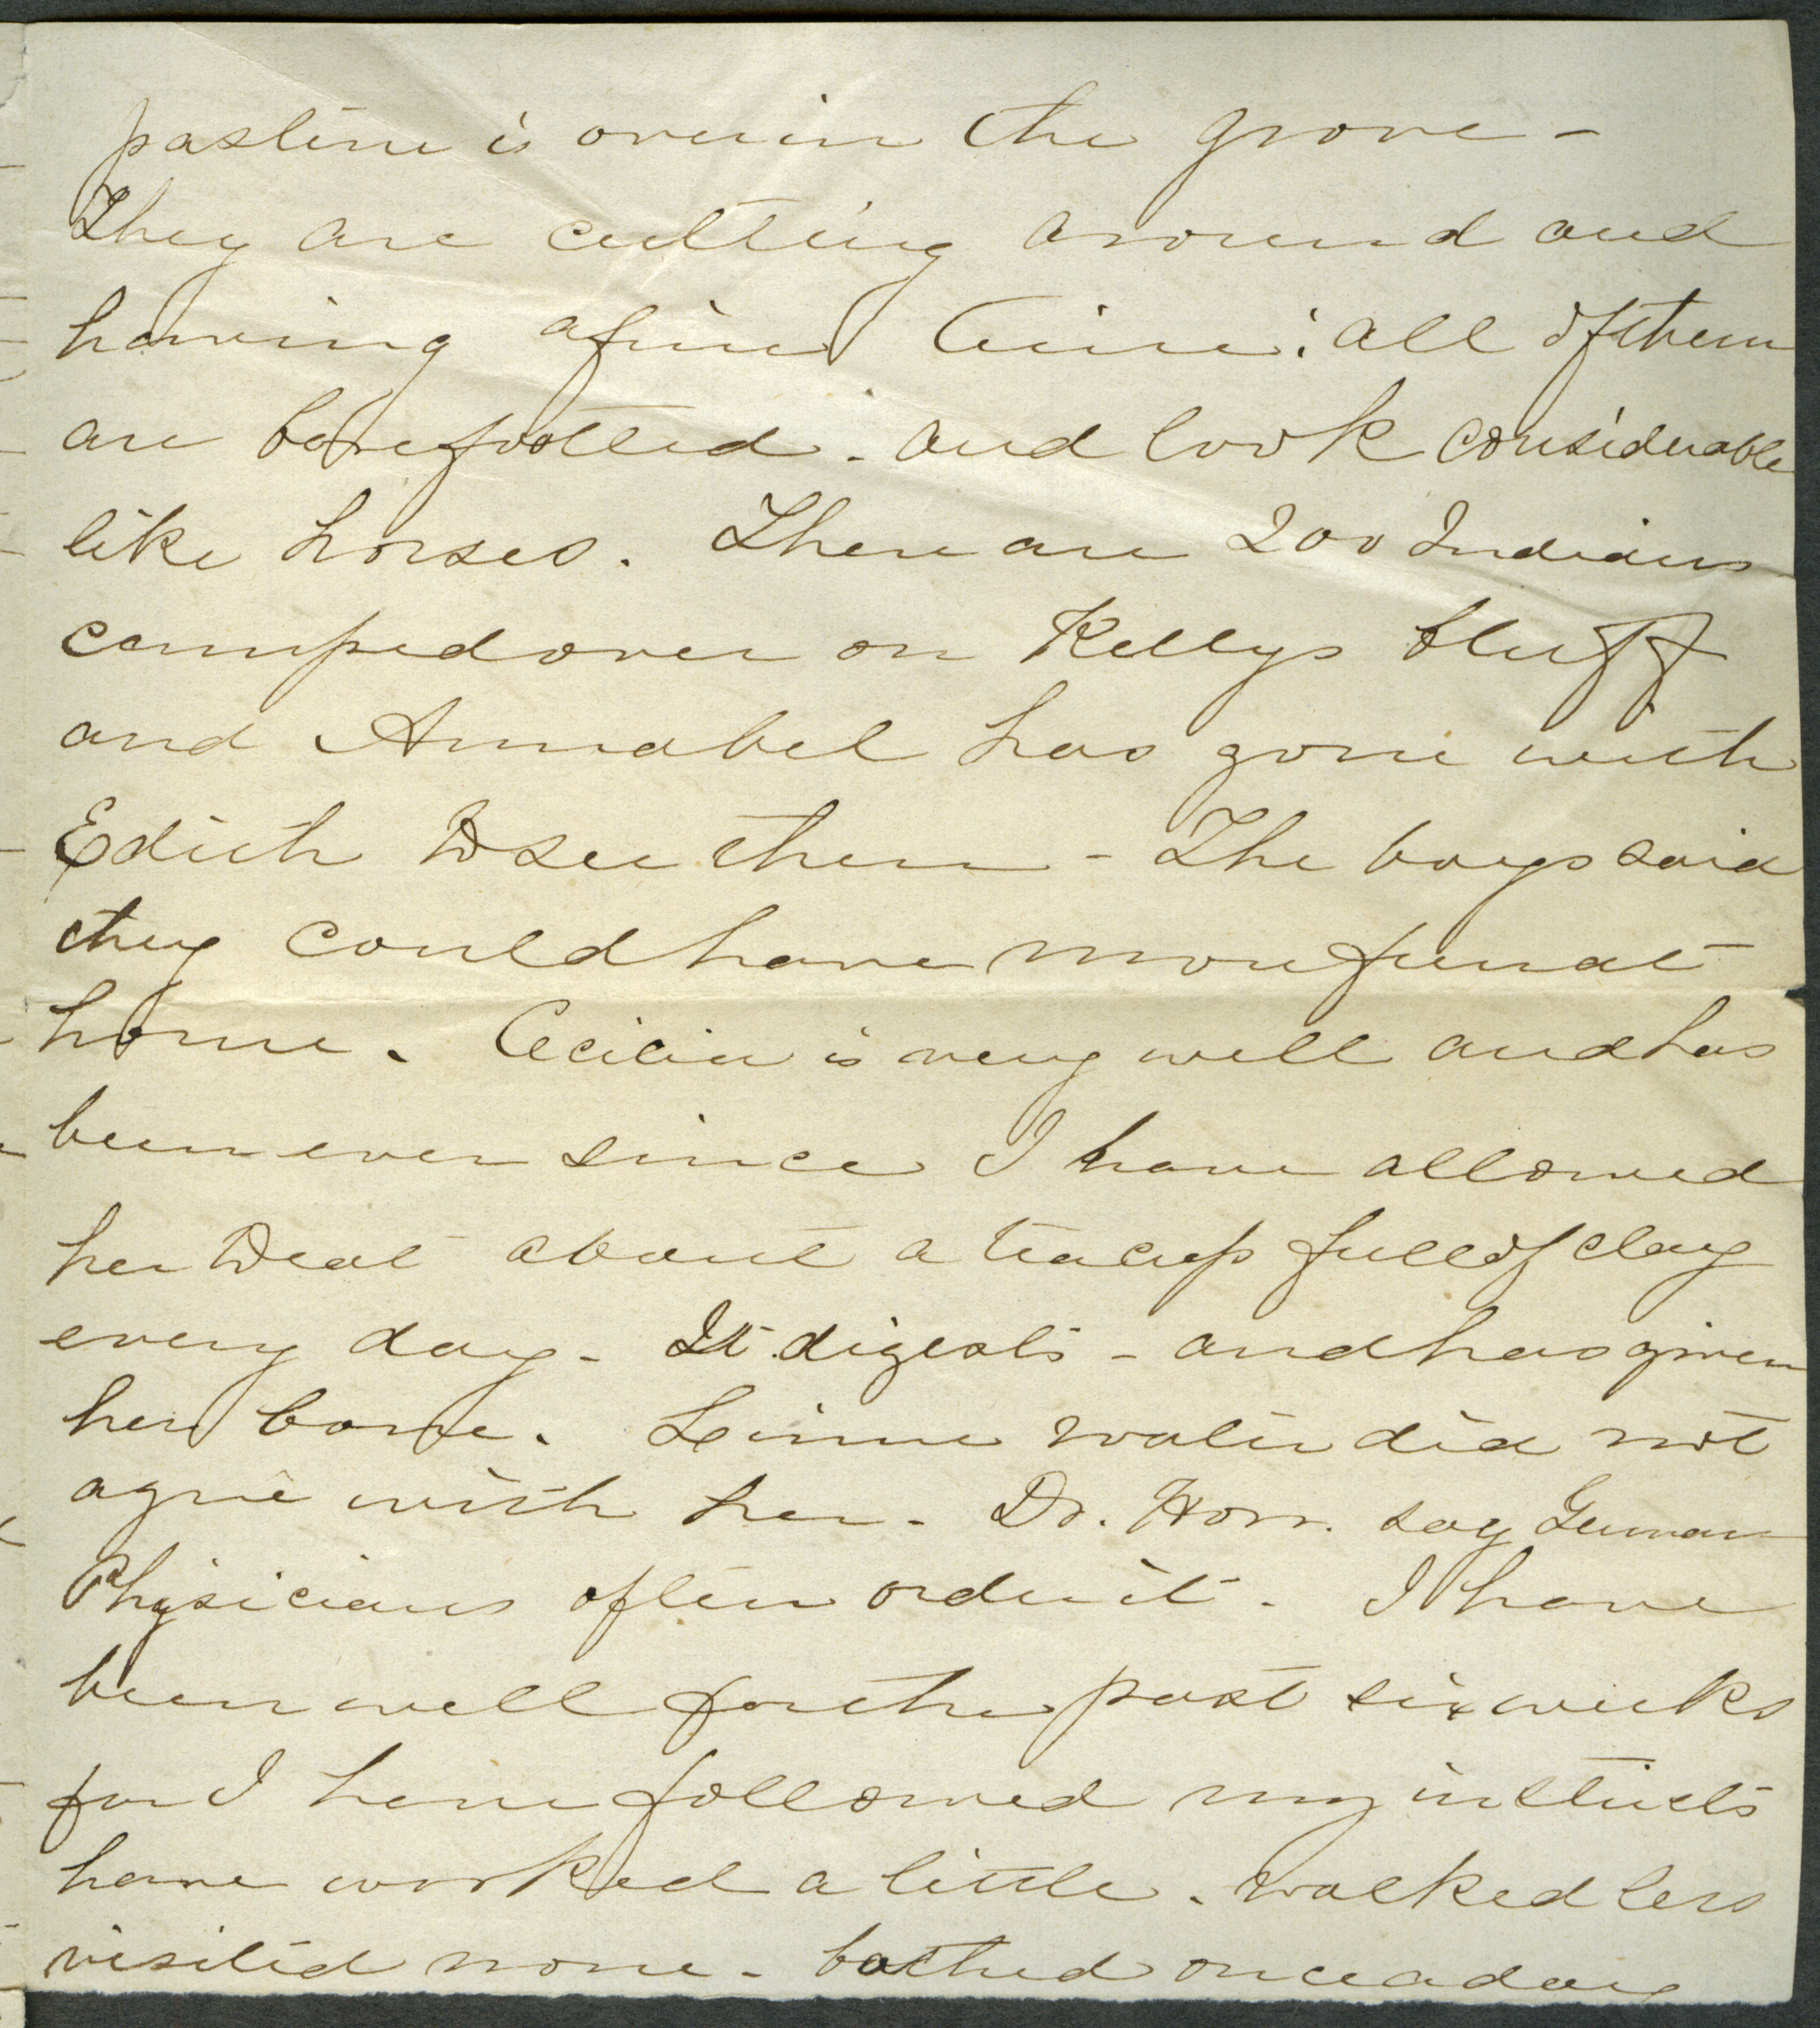 pastime is over in the grove -
They are cutting around and
having a fine time: all of them
are barefootted - and look considerable
like horses. There are 200 Indians
camped over on Kellys bluff
and Annabel has gone with
Edith to see them - The boys said
they could have more fun at
home. Cecilia is very well and has
been ever since I have allowed
her to eat about a teacup full of clay
every day - It digests - and has given
her bone. Lime water did not
agree with her - Dr. Horr. say German
Physicians often order it - I have
been well for the past six weeks
for I have followed my instincts
have worked a little - walked less
visited none - bathed once a day